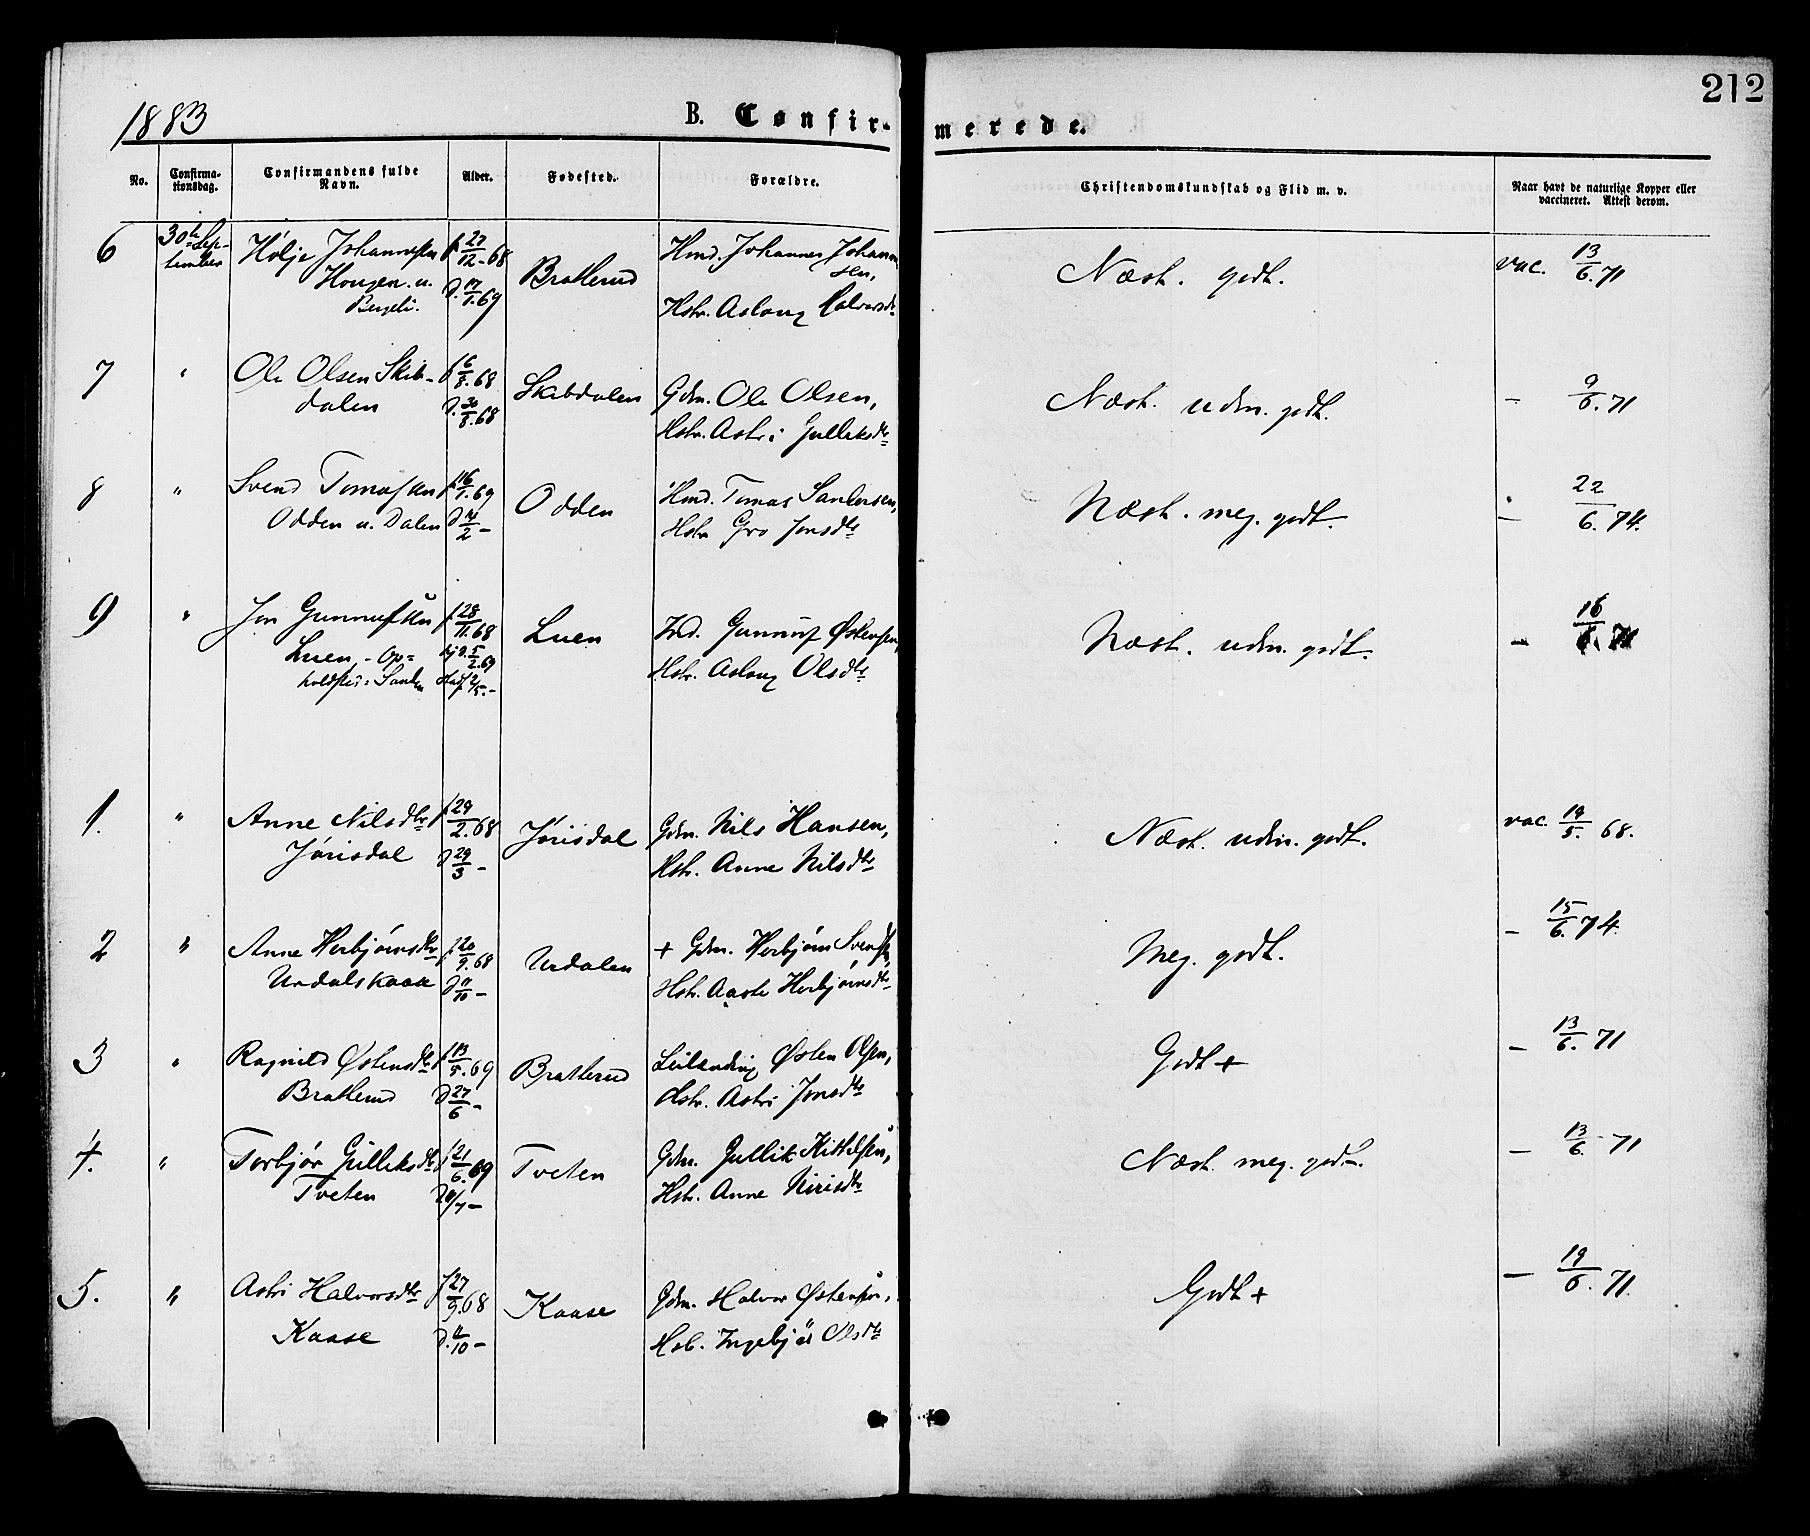 212
1883
B. Confir-
merede.
No.
Confirma-
tionsdag.
Confirmandens fulde
Navn.
Alder.
Fødested.
Forældre.
Christendomskundskab og Flid m. v.
Naar havt de naturlige Kopper eller
vaccineret. Attest derom.
6 30te Sep-
tember
Hølje Johannesen
Hougen u.
f 27/12-68
d. 17/1.69
Bratterud
Hmd. Johannes Johann
sen,
Hstr. Aslaug Halvorsdtr
Næst. godt.
vac. 13/6.71
7 " Ole Olsen Skib-
dalen
f 6/8.68
d. 30/8.68
Skibdalen
Gdm. Ole Olsen,
Hstr. Astri Gulliksdtr
Næst. udm. godt.
— 9/6.71
8 " Svend Tomassen
Odden u. Dalen
f 16/1.69
d 14/2 —
Odden
Hmd. Tomas Sandersen,
Hstr Gro Jonsdtr
Næst. meg. godt.
— 22/6.74.
9 " Jon Gunnufsen
Luen, - Op=
holdsted: Sanden
f 28/11.68
hj d. 5/2.69
stadf 2/5. —
Luen
Ind. Gunnuf Østensen,
Hstr. Aslaug Olsdtr
Næst. udm. godt.
— 16/6.71
1. " Anne Nilsdtr
Jørisdal
f 29/2.68
d 29/3 —
Jørisdal
Gdm. Nils Hansen,
Hstr. Anne Nilsdtr
Næst. udm. godt.
vac. 19/5.68.
2 " Anne Herbjørnsdtr
Urdalskaas
f 20/9.68
d 11/10 —
Urdalen
+ Gdm. Herbjørn Svendsen,
Hstr. Aaste Herbjørnsdtr
Meg. godt.
— 15/6.74.
3 " Ragnild Østensdtr
Bratterud
f 13/5.69
d 27/6 —
Bratterud
Leilending Østen Olsen,
Hstr. Astri Jonsdtr
Godt +
— 13/6.71
4. " Torbjør Gulliksdtr
Tveten
f 21/6.69
d 11/7 —
Tveten
Gdm. Gullik Kittilsen,
Hstr. Anne Nirisdtr
Næst. meg. godt.
— 13/6.71
5. " Astri Halvorsdtr
Kaase
f 27/9.68
d. 11/10 —
Kaase
Gdm. Halvor Østensen,
Hstr. Ingebjør Olsdtr
Godt +
— 19/6.71.